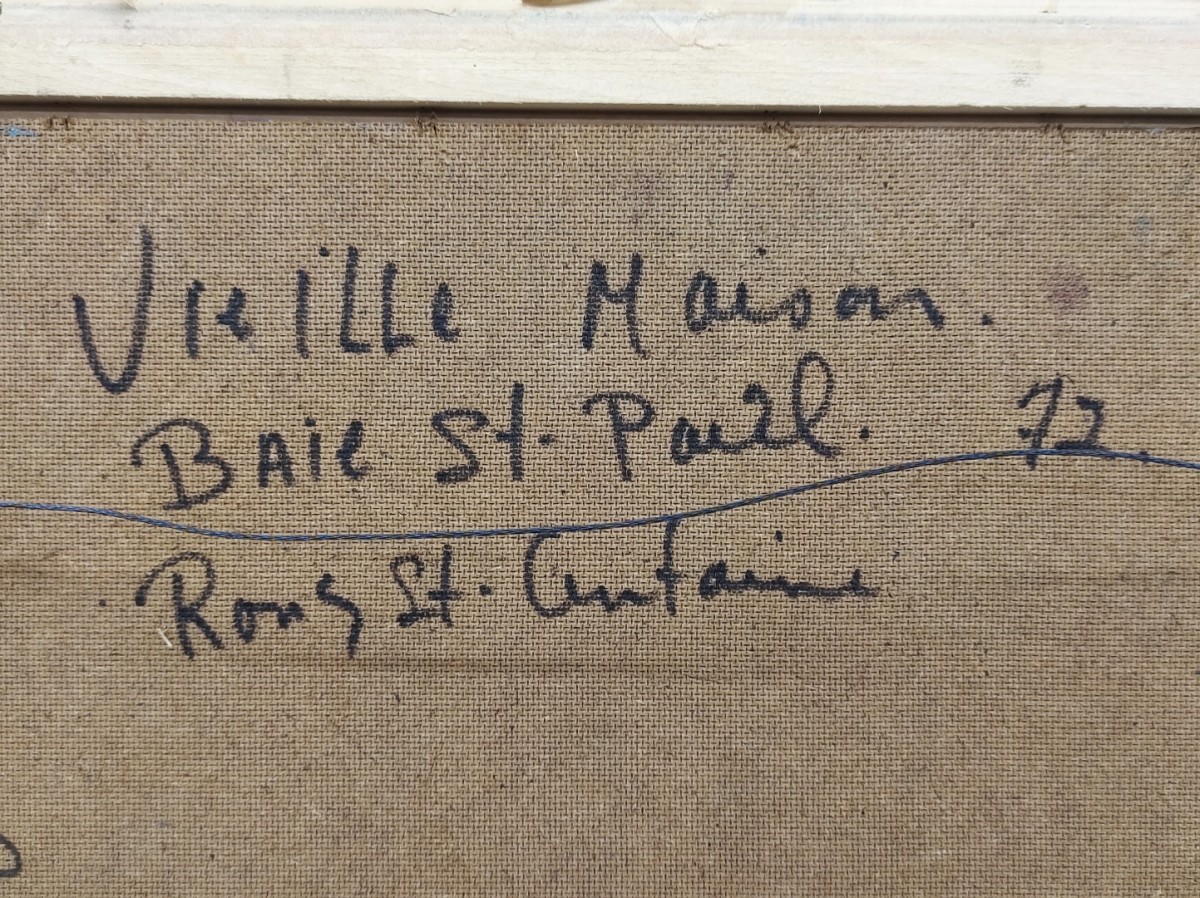 Vieille Maison.
Baie St. Paul. 72.
Rang St. Antoine